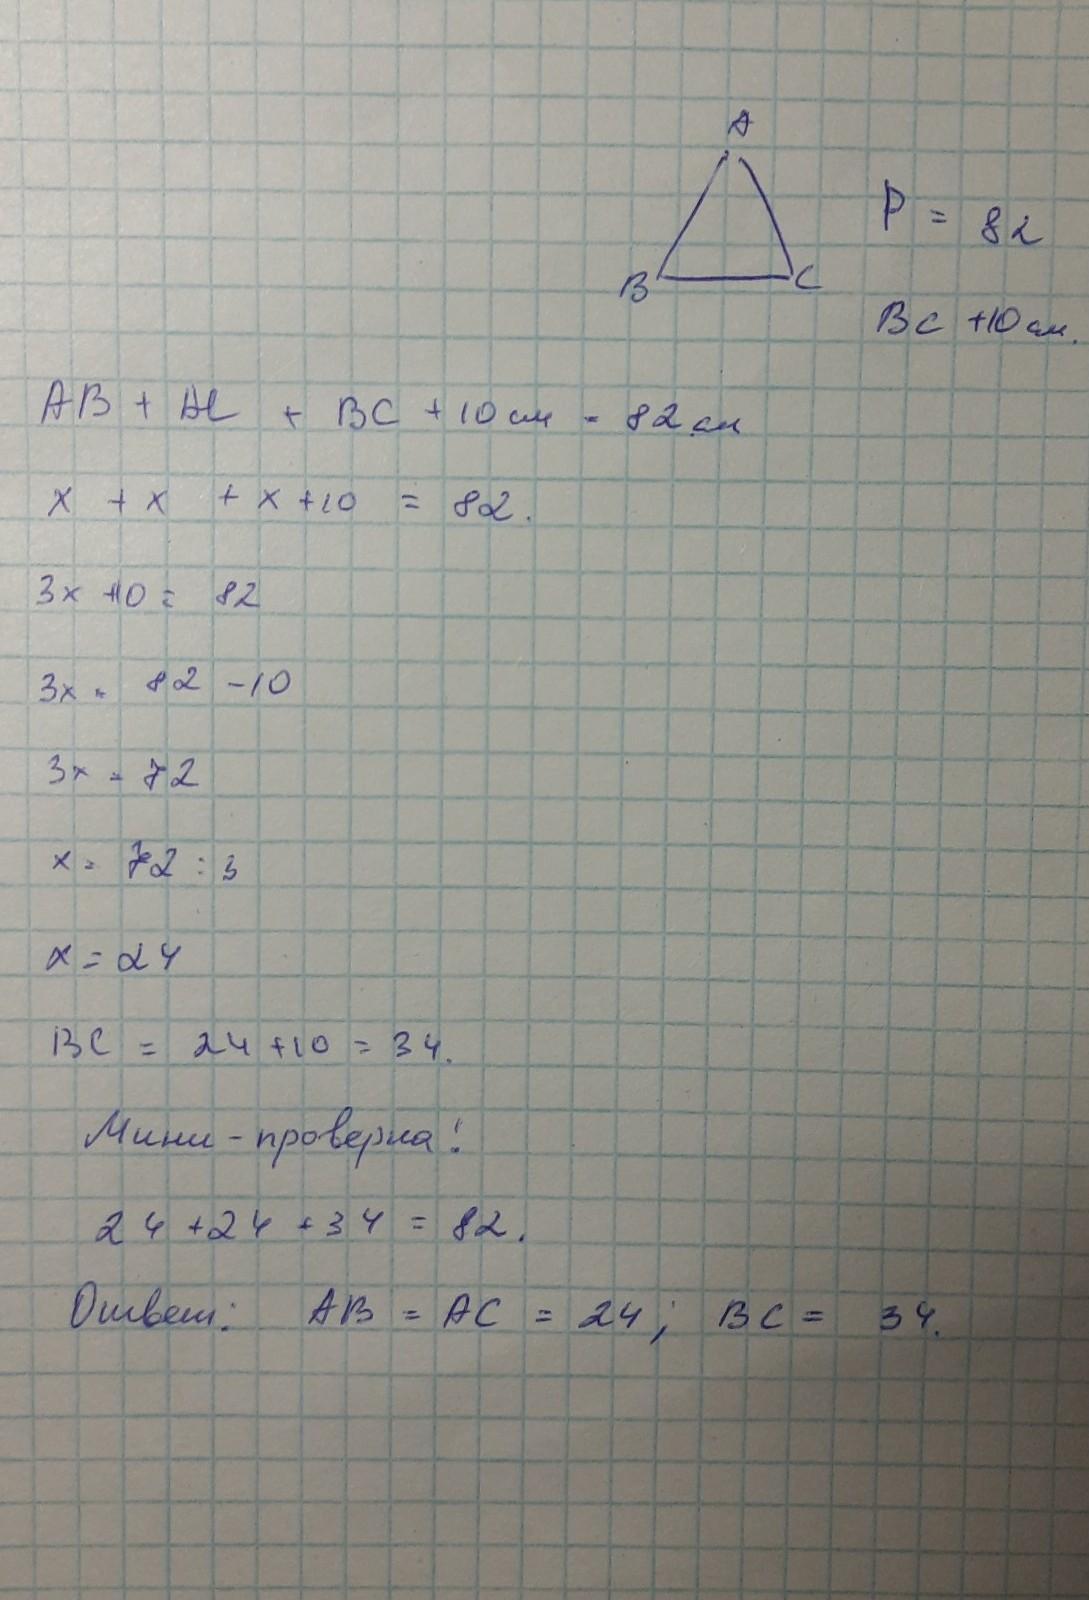 A
P = 82
B C
BC +10 см.
AB + AC + BC + 10 см = 82 см
x + x + x + 10 = 82.
3x +10 = 82
3x = 82 - 10
3x = 72
x = 72 : 3
x = 24
BC = 24 + 10 = 34.
Мини-проверка!
24 + 24 + 34 = 82.
Ответ: AB = AC = 24; BC = 34.